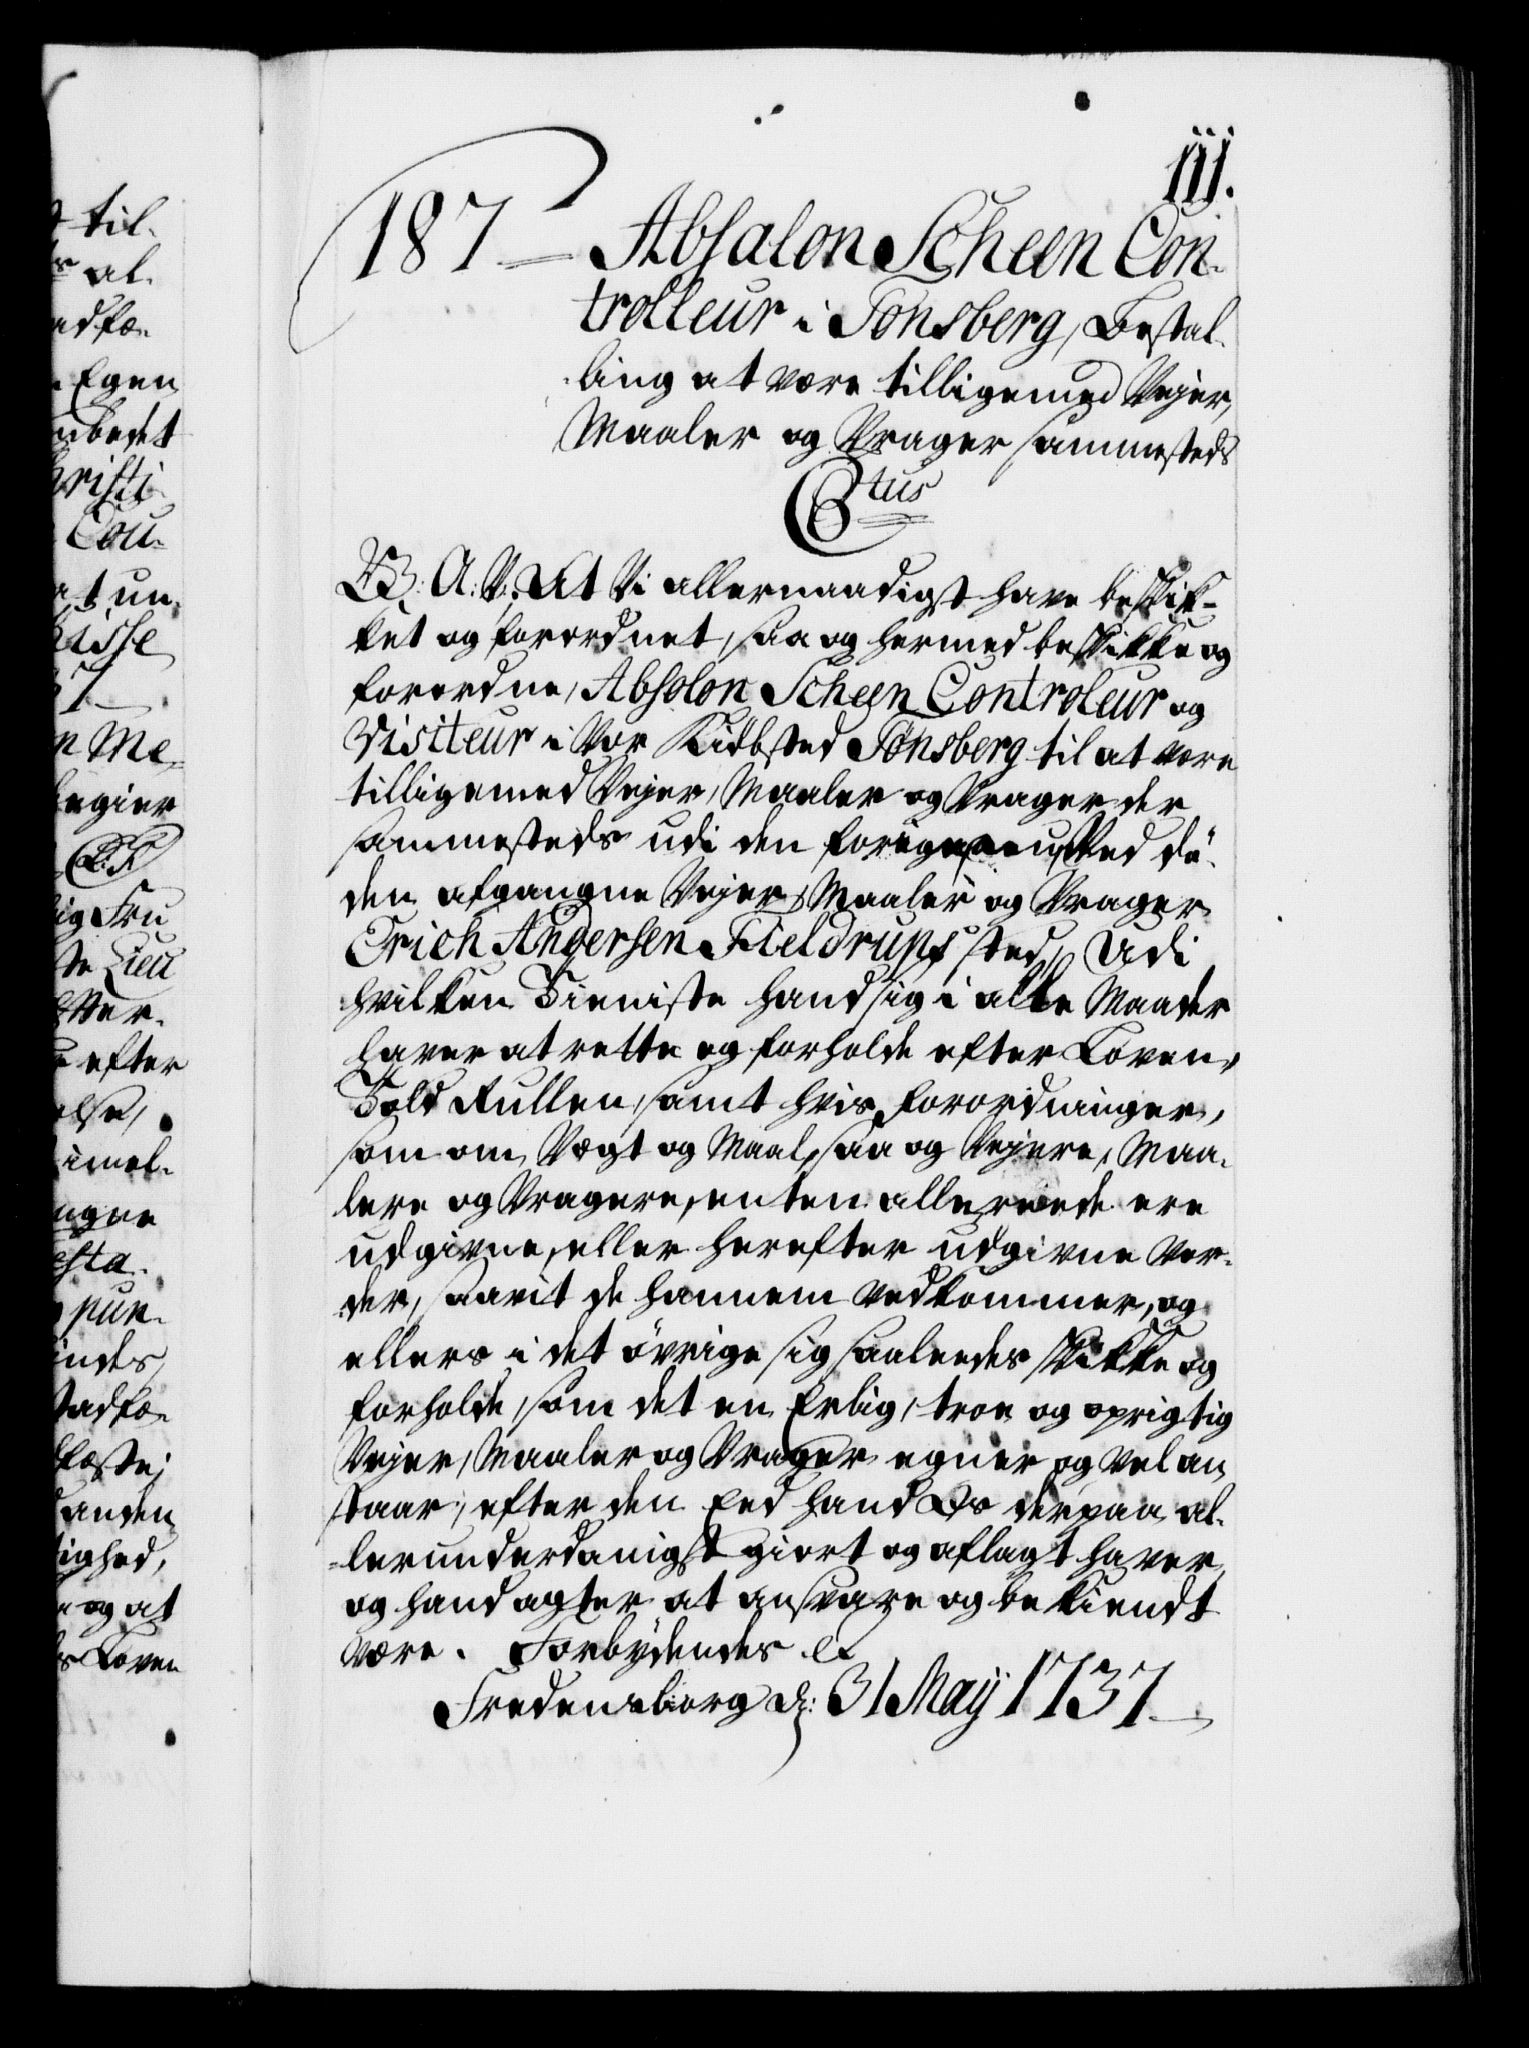 til.
al.
Egen
Cou-
at un-
Me-
Fru
Lieu
efter
anden
og at
Loven
111.
187 Absalon Scheen Con-
trolleur i Tønsberg, Bestal-
ling at være tilligemed Vejer,
Maaler og Vrager sammesteds
C6tus
W: A: V: At Vi allernaadigst have beskik-
ket og forordnet, saa og hermed beskikke og
forordne, Absolon Scheen Controleur og
Visiteur i Vor Kiøbsted Tønsberg til at være
tilligemed Vejer, Maaler og Vrager der
sammesteds udi den forige ved dø-
den afgangne Vejer, Maaler og Vrager
Erich Andersen Fieldrups sted, Udi
hvilken Tieniste hand sig i alle Maader
haver at rette og forholde efter Loven,
Told Rullen, samt hvis Forordninger,
som om Vægt og Maal, saa og Vejere, Maa-
lere og Vragere, enten allereede ere
udgivne, eller herefter udgivne vor-
der, saavit de hannem vedkommer, og
ellers i det øvrige sig saaleedes skikke og
forholde, som det en Erlig, troe og oprigtig
Vejer, Maaler og Vrager egner og vel an-
staar, efter den Eed hand Os derpaa al-
lerunderdanigst giort og aflagt haver,
og hand agter at ansvare og bekiendt
være. Forbydendes &
Fredensborg d: 31 Maij 1737